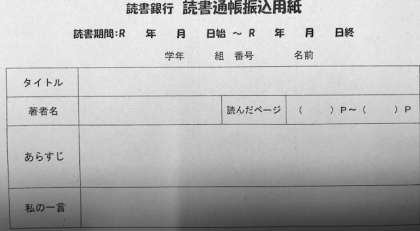 読書銀行 読書通帳振込用紙
読書期間:R 年 月 日始 ～ R 年 月 日終
学年 組 番号 名前
タイトル
著者名 読んだページ ( ) P～( ) P
あらすじ
私の一言